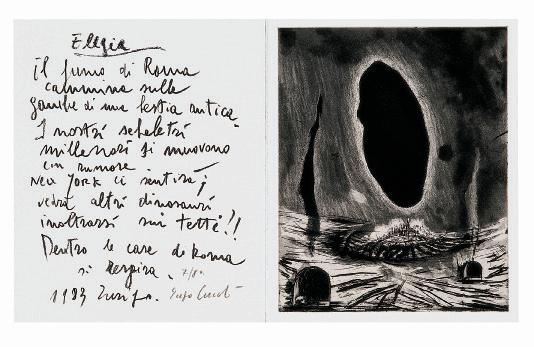 Elegia
il fumo di Roma
cammina sulle
gambe di una bestia antica
I nostri scheletri
millenari si muovono
con rumore
New York ci sentirà;
vedrà altri dinosauri
inoltrarsi sui tetti!!
Dentro le case di Roma
si respira.
1983